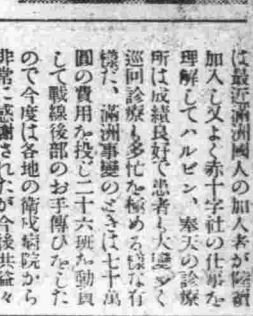 は最近滿洲國人の加入者が陸續
加入し又よく赤十字社の仕事を
理解してハルビン、奉天の診療
所は成績良好で患者も大變多く
巡回診療も多忙を極める樣な有
樣だ、滿洲事變のときは七十萬
圓の費用を投じ二十六班も動員
して戰線後部のお手傳ひをした
ので今度は各地の衛戍病院から
非常に感謝されたが今後共益々